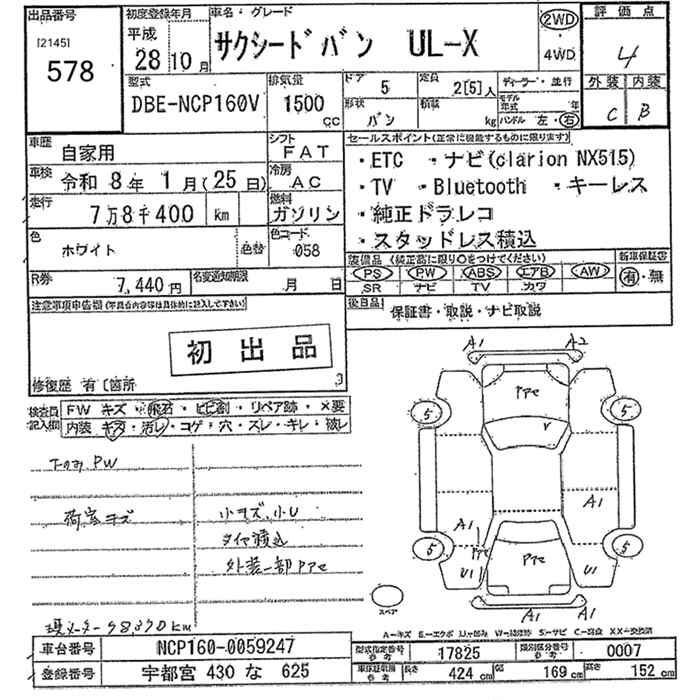 出品番号
[2145]
578
初度登録年月
平成
28 10 月
車名・グレード
サクシードバン UL-X
2WD
4WD
評価点
4
外装 内装
C B
型式
DBE-NCP160V
排気量
1500
cc
ドア
5
形状
バン
定員
2[5]人
積載
kg
ディーラー・並行
モデル年式 年
ハンドル 左・右
車歴
自家用
シフト
FAT
車検
令和 8年 1月(25日)
冷房
AC
走行
7万8千400 km
燃料
ガソリン
色
ホワイト
色替
色コード
058
R券
7,440円
名変通知期限
月 日
セールスポイント(正常に機能するものに限ります)
・ETC ・ナビ(clarion NX515)
・TV ・Bluetooth ・キーレス
・純正ドラレコ
・スタッドレス積込
装備品(純正高に限り○をつけてください)
新車保証書
PS PW ABS エアB AW
有・無
SR ナビ TV カワ
後日品
保証書・取説・ナビ取説
注意事項申告欄(写真店内容等は具体的に記入して下さい)
初出品
修復歴 有〔箇所
検査員記入欄
FW キズ・飛石・ヒビ割・リペア跡・×要
内装 キズ・汚レ・コゲ・穴・スレ・キレ・破レ
下のみ PW
荷室キズ
小キズ、小U
タイヤ積込
外装一部PPた
現メーター 78390km
A1 A2
5 5
A1
A1
U1 U1
5 5
A1 A1
スペア
A-キズ E-エクボ U-凹み W-補修跡 S-サビ C-腐食 XX-交換済
車台番号
NCP160-0059247
型式指定番号 参考
17825
類別区分番号 参考
0007
登録番号
宇都宮 430 な 625
車庫証明用 参考
長さ 424 cm 幅 169 cm 高さ 152 cm